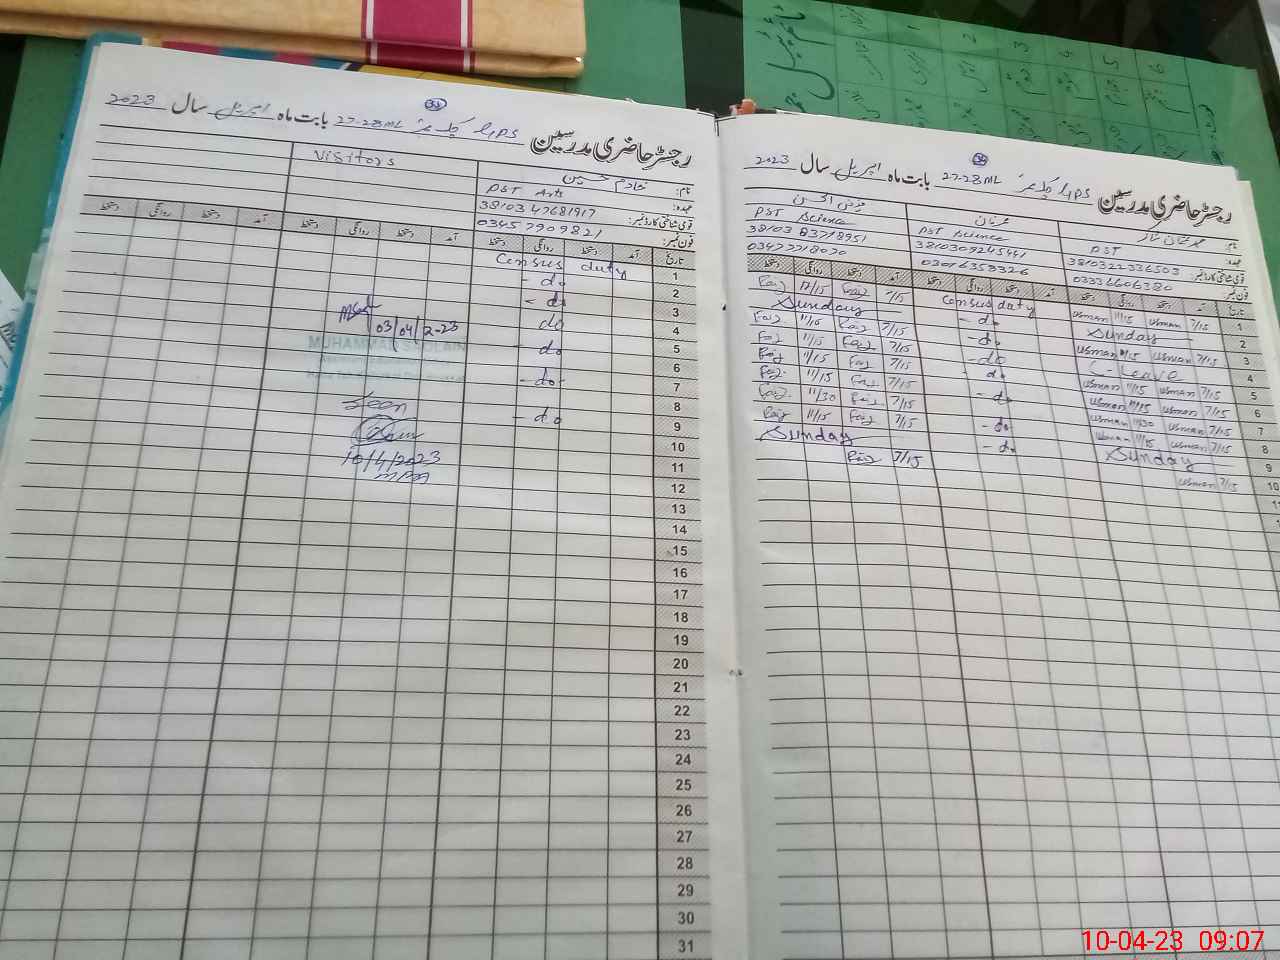 رجسٹر حاضری مدرسین GPS چک نمبر 27-28 ML بابت ماہ اپریل سال 2023
34
نام: خادم حسین
Visitors
عہدہ: PST Arts
قومی شناختی کارڈ نمبر: 38103 47681917
فون نمبر: 03457909821
تاریخ آمد دستخط روانگی دستخط آمد دستخط روانگی دستخط آمد دستخط روانگی دستخط
1 Census duty
2 - do
3 - do
4 do
03/04/2023
5 - do
MUHAMMAD
6
7 - do-
8
Seen
9 - do
10
11
10/4/2023
12
13
14
15
16
17
18
19
20
21
22
23
24
25
26
27
28
29
30
31
رجسٹر حاضری مدرسین GPS چک نمبر 27-28 ML بابت ماہ اپریل سال 2023
نام:
PST
PST Science
PST Science
قومی شناختی کارڈ نمبر: 3810322336503
3810309245441
38103 83718951
فون نمبر: 03336606380
03016353326
03477718020
تاریخ آمد دستخط روانگی دستخط آمد دستخط روانگی دستخط آمد دستخط روانگی دستخط
1 7/15 usman 11/15 usman Census duty 7/15 Faiz 12/15 Faiz
2 Sunday - do Sunday
3 7/15 usman 11/15 usman - do 7/15 Faiz 11/15 Faiz
4 C-Leave - do 7/15 Faiz 11/15 Faiz
5 7/15 usman 11/15 usman - do 7/15 Faiz 11/15 Faiz
6 7/15 usman 11/15 usman 7/15 Faiz 11/15 Faiz
7 7/15 usman 11/30 usman - do 7/15 Faiz 11/30 Faiz
8 7/15 usman 11/15 usman - do 7/15 Faiz 11/15 Faiz
9 Sunday - do Sunday
10 7/15 usman 7/15 Faiz
10-04-23 09:07